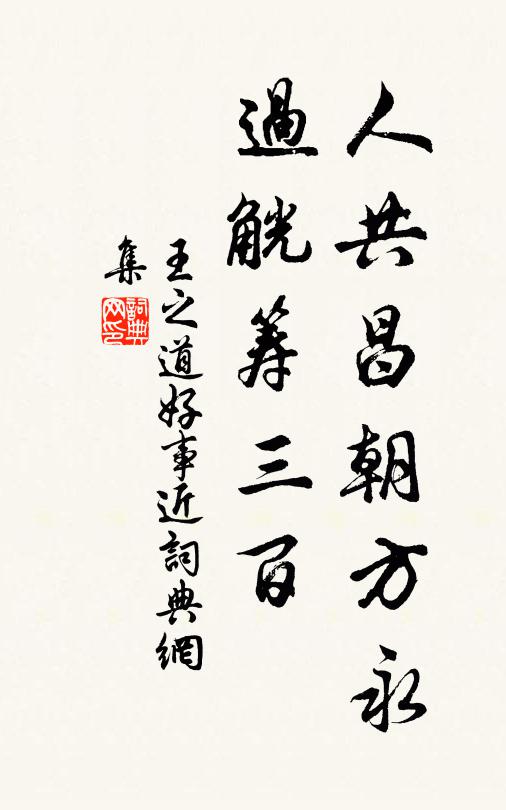 人共昌朝方永
過觥筹三百
王之道好事近詞典網
集
詞典
网印